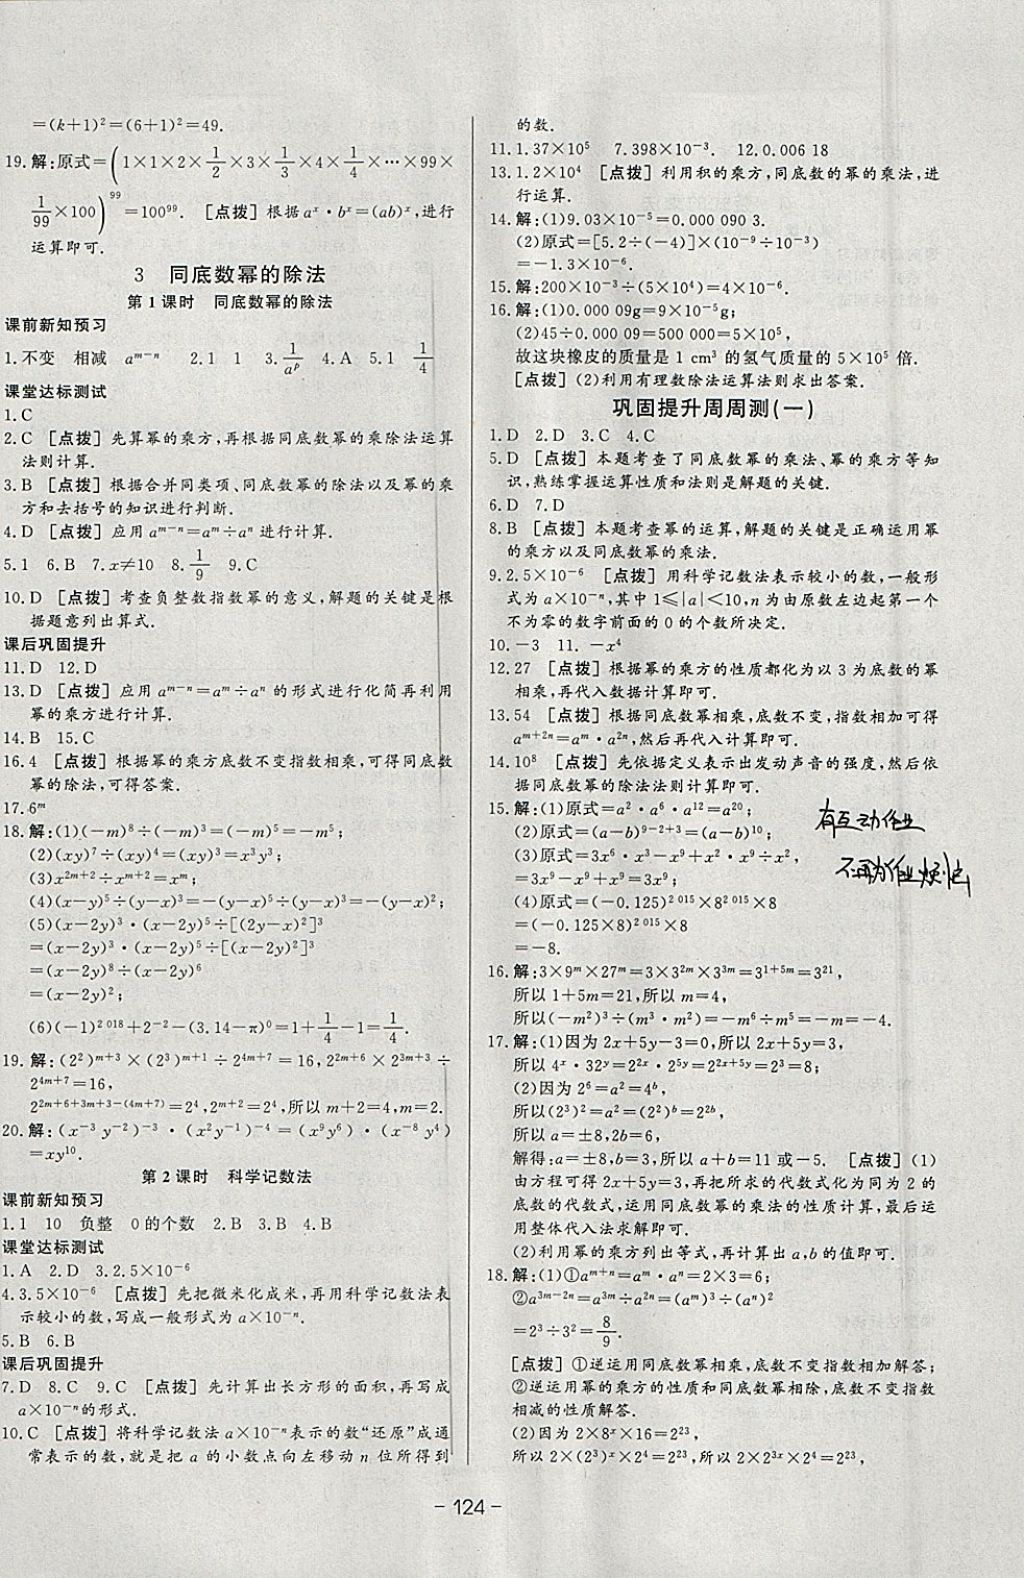 =(k+1)²=(6+1)²=49.
19.解:原式=(1×1×2×1/2×3×1/3×4×1/4×…×99×
1/99×100)⁹⁹=100⁹⁹. [点拨]根据aˣ·bˣ=(ab)ˣ,进行
运算即可.
3 同底数幂的除法
第1课时 同底数幂的除法
课前新知预习
1.不变 相减 aᵐ⁻ⁿ 2.1 1 3.1/aᵖ 4.A 5.1 1/4
课堂达标测试
1.C
2.C [点拨]先算幂的乘方,再根据同底数幂的乘除法运算
法则计算.
3.B [点拨]根据合并同类项、同底数幂的除法以及幂的乘
方和去括号的知识进行判断.
4.D [点拨]应用aᵐ⁻ⁿ=aᵐ÷aⁿ进行计算.
5.1 6.B 7.x≠10 8.1/9 9.C
10.D [点拨]考查负整数指数幂的意义,解题的关键是根
据题意列出算式.
课后巩固提升
11.D 12.D
13.D [点拨]应用aᵐ⁻ⁿ=aᵐ÷aⁿ的形式进行化简再利用
幂的乘方进行计算.
14.B 15.C
16.4 [点拨]根据幂的乘方底数不变指数相乘,可得同底数
幂的除法,可得答案.
17.6ᵐ
18.解:(1)(-m)⁸÷(-m)³=(-m)⁵=-m⁵;
(2)(xy)⁷÷(xy)⁴=(xy)³=x³y³;
(3)x²ᵐ⁺²÷xᵐ⁺²=xᵐ;
(4)(x-y)⁵÷(y-x)³=-(y-x)⁵÷(y-x)³=-(y-x)²;
(5)(x-2y)³·(x-2y)⁵÷[(2y-x)²]³
=(x-2y)³·(x-2y)⁵÷[(x-2y)²]³
=(x-2y)⁸÷(x-2y)⁶
=(x-2y)²;
(6)(-1)²⁰¹⁸+2⁻²-(3.14-π)⁰=1+1/4-1=1/4.
19.解:(2²)ᵐ⁺³×(2³)ᵐ⁺¹÷2⁴ᵐ⁺⁷=16,2²ᵐ⁺⁶×2³ᵐ⁺³÷
2⁴ᵐ⁺⁷=16,
2²ᵐ⁺⁶⁺³ᵐ⁺³⁻⁽⁴ᵐ⁺⁷⁾=2⁴,2ᵐ⁺²=2⁴,所以m+2=4,m=2.
20.解:(x⁻³y⁻²)⁻³·(x²y⁻¹)⁻⁴=(x⁹y⁶)·(x⁻⁸y⁴)
=xy¹⁰.
第2课时 科学记数法
课前新知预习
1.1 10 负整 0的个数 2.B 3.B 4.B
课堂达标测试
1.A 2.D 3.2.5×10⁻⁶
4.3.5×10⁻⁶ [点拨]先把微米化成米,再用科学记数法表
示较小的数,写成一般形式为a×10⁻ⁿ.
5.B 6.B
课后巩固提升
7.D 8.C 9.C [点拨]先计算出长方形的面积,再写成
a×10⁻ⁿ的形式.
10.C [点拨]将科学记数法a×10⁻ⁿ表示的数“还原”成通
常表示的数,就是把a的小数点向左移动n位所得到
的数.
11.1.37×10⁵ 7.398×10⁻³. 12.0.006 18
13.1.2×10⁴ [点拨]利用积的乘方,同底数的幂的乘法,进
行运算.
14.解:(1)9.03×10⁻⁵=0.000 090 3.
(2)原式=[5.2÷(-4)]×(10⁻⁹÷10⁻³)
=-1.3×10⁻⁶.
15.解:200×10⁻³÷(5×10⁴)=4×10⁻⁶.
16.解:(1)0.000 09g=9×10⁻⁵g;
(2)45÷0.000 09=500 000=5×10⁵,
故这块橡皮的质量是1 cm³的氢气质量的5×10⁵倍.
[点拨](2)利用有理数除法运算法则求出答案.
巩固提升周周测(一)
1.D 2.D 3.C 4.C
5.D [点拨]本题考查了同底数幂的乘法、幂的乘方等知
识,熟练掌握运算性质和法则是解题的关键.
6.D 7.D
8.B [点拨]本题考查幂的运算,解题的关键是正确运用幂
的乘方以及同底数幂的乘法.
9.2.5×10⁻⁶ [点拨]用科学记数法表示较小的数,一般形
式为a×10⁻ⁿ,其中1≤|a|<10,n为由原数左边起第一个
不为零的数字前面的0的个数所决定.
10.-3 11.-x⁴
12.27 [点拨]根据幂的乘方的性质都化为以3为底数的幂
相乘,再代入数据计算即可.
13.54 [点拨]根据同底数幂相乘,底数不变,指数相加可得
aᵐ⁺²ⁿ=aᵐ·a²ⁿ,然后再代入计算即可.
14.10⁸ [点拨]先依据定义表示出发动声音的强度,然后依
据同底数幂的除法法则计算即可.
15.解:(1)原式=a²·a⁶·a¹²=a²⁰;
(2)原式=(a-b)⁹⁻²⁺³=(a-b)¹⁰;
(3)原式=3x⁶·x³-x⁹+x²·x⁹÷x²,
=3x⁹-x⁹+x⁹=3x⁹;
(4)原式=(-0.125)²⁰¹⁵×8²⁰¹⁵×8
=(-0.125×8)²⁰¹⁵×8
=-8.
16.解:3×9ᵐ×27ᵐ=3×3²ᵐ×3³ᵐ=3¹⁺⁵ᵐ=3²¹,
所以1+5m=21,所以m=4,
所以(-m²)³÷(m³·m²)=-m⁶÷m⁵=-m=-4.
17.解:(1)因为2x+5y-3=0,所以2x+5y=3,
所以4ˣ·32ʸ=2²ˣ·2⁵ʸ=2²ˣ⁺⁵ʸ=2³=8;
(2)因为2⁶=a²=4ᵇ,
所以(2³)²=a²=(2²)ᵇ=2²ᵇ,
所以a=±8,2b=6,
解得:a=±8,b=3,所以a+b=11或-5. [点拨](1)
由方程可得2x+5y=3,再把所求的代数式化为同为2的
底数的代数式,运用同底数幂的乘法的性质计算,最后运
用整体代入法求解即可.
(2)利用幂的乘方列出等式,再计算出a,b的值即可.
18.解:(1)①aᵐ⁺ⁿ=aᵐ·aⁿ=2×3=6;
②a³ᵐ⁻²ⁿ=a³ᵐ÷a²ⁿ=(aᵐ)³÷(aⁿ)²
=2³÷3²=8/9.
[点拨]①逆运用同底数幂相乘,底数不变指数相加解答;
②逆运用幂的乘方的性质和同底数幂相除,底数不变指数
相减的性质解答.
(2)因为2×8ˣ×16=2²³,
所以2×(2³)ˣ×2⁴=2²³,所以2×2³ˣ×2⁴=2²³,
有互动作业
不再为作业烦恼
- 124 -